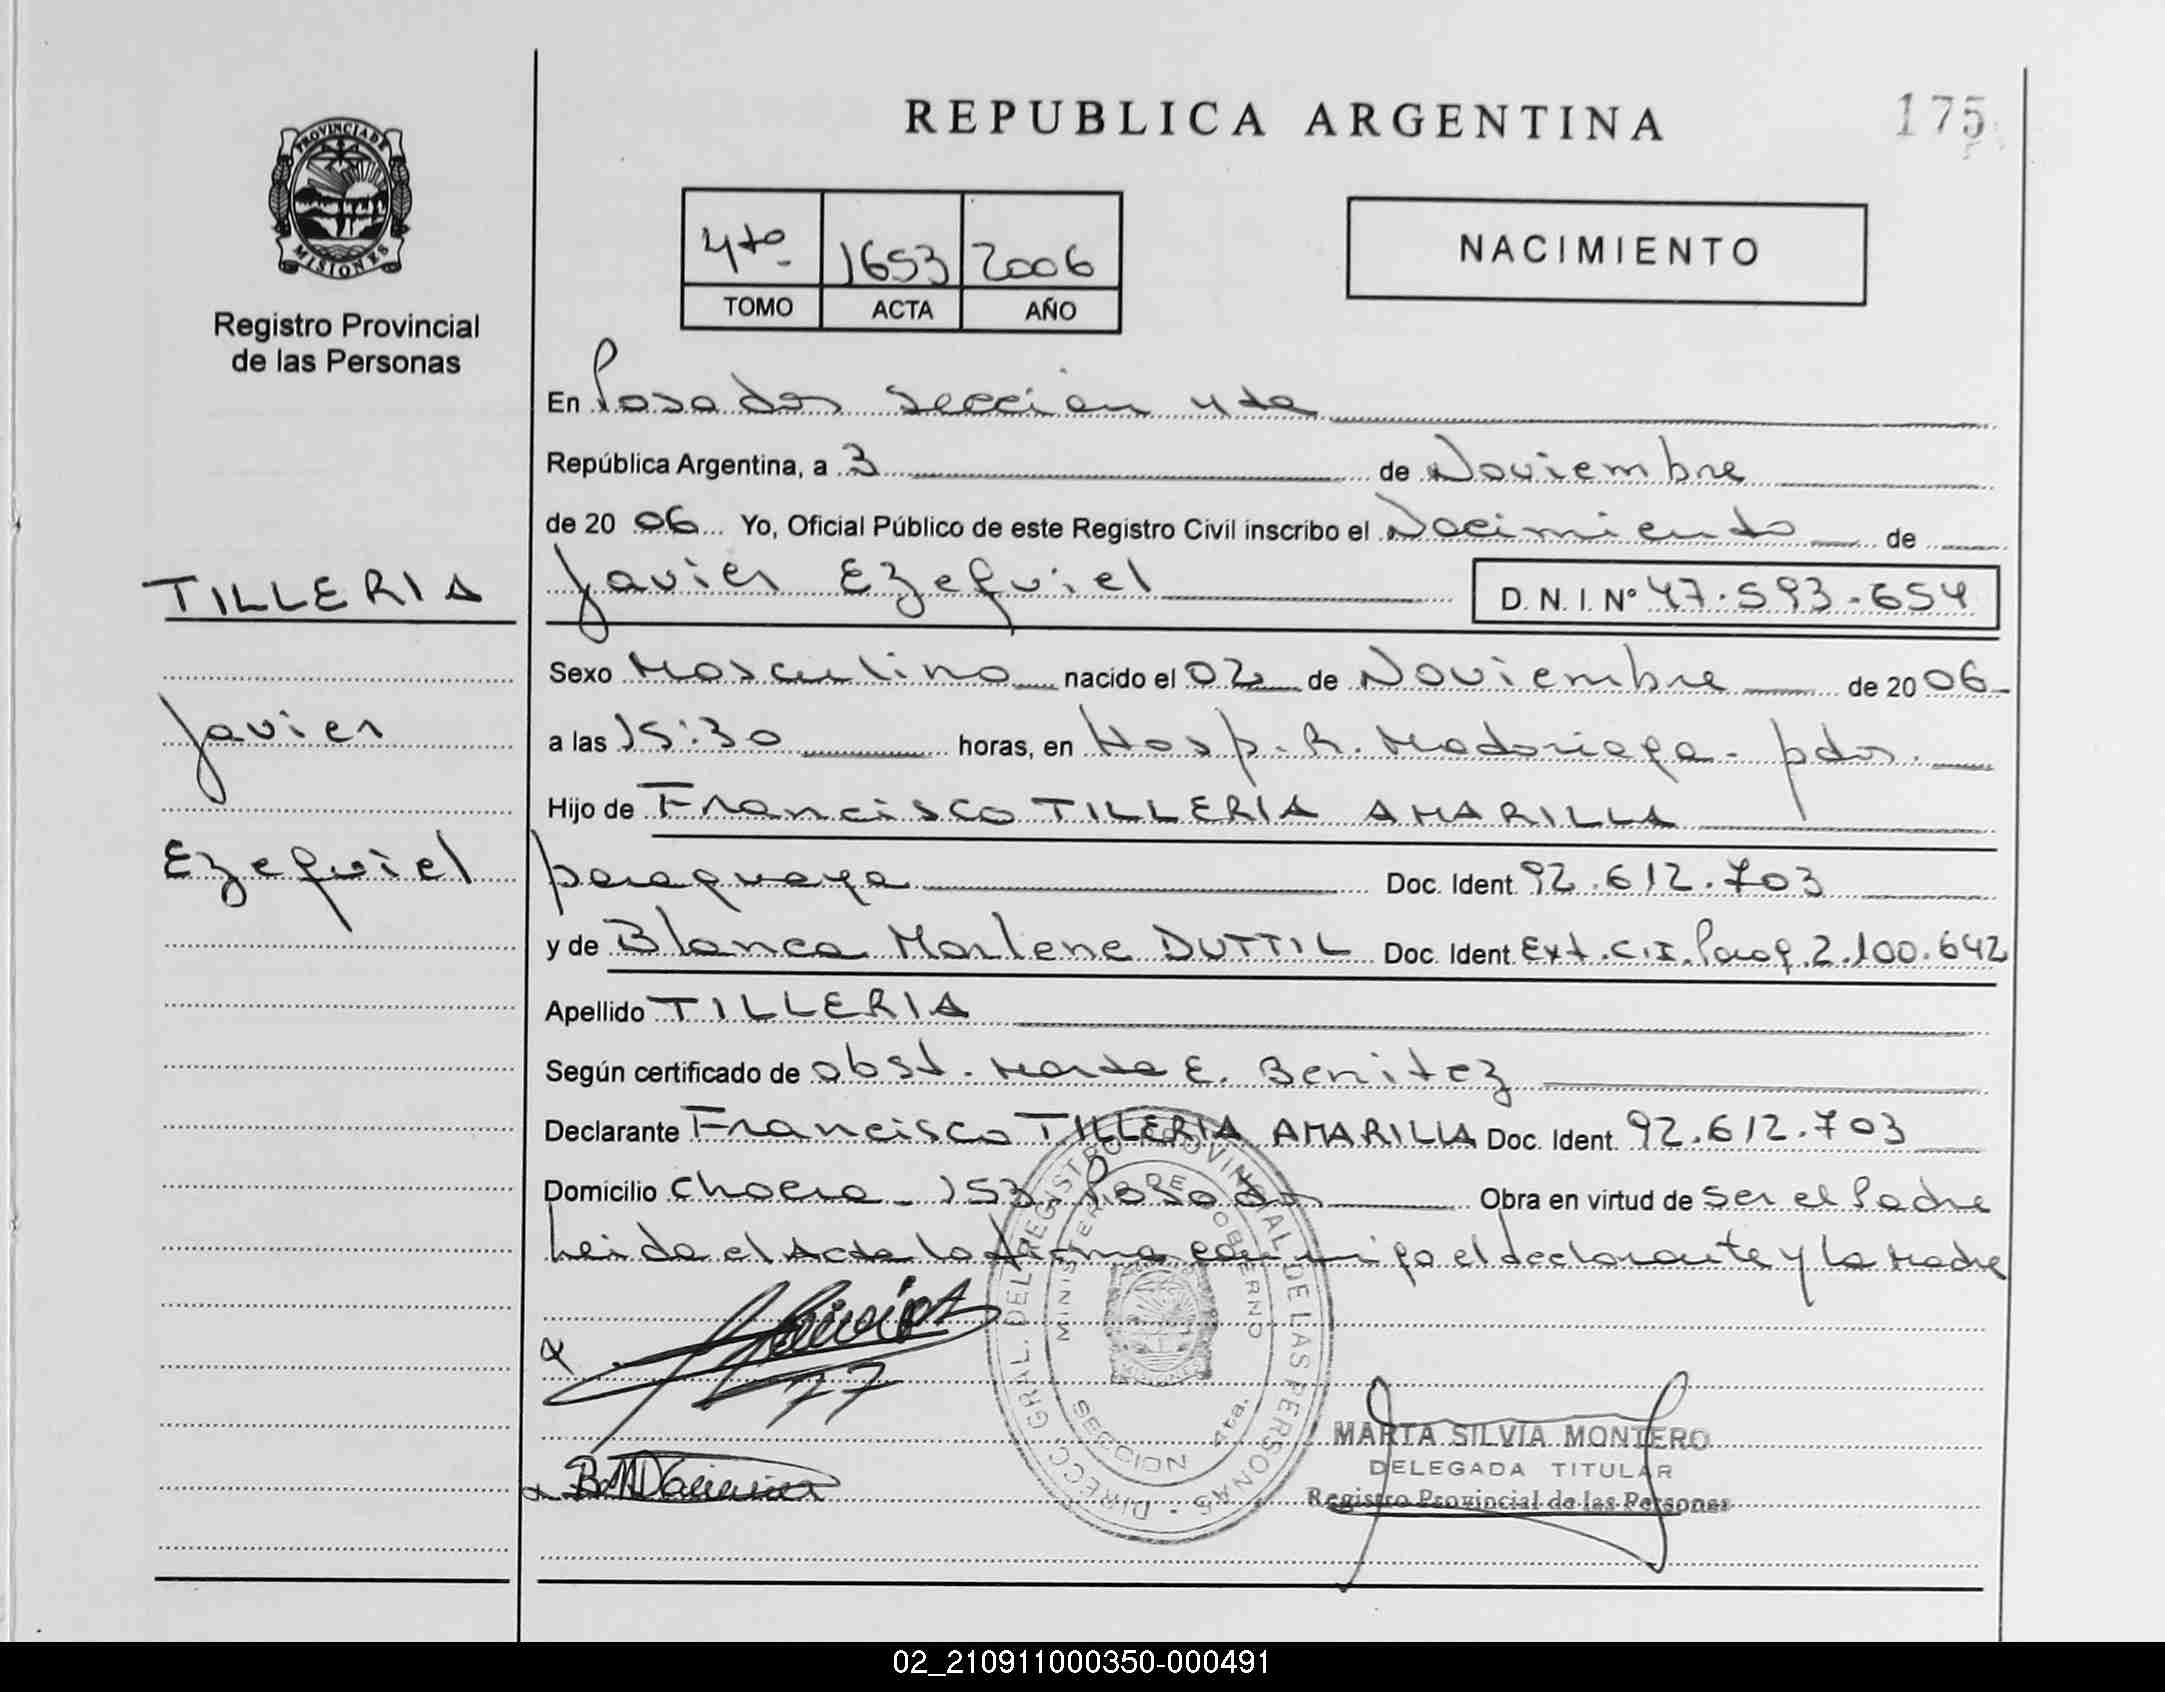 REPUBLICA ARGENTINA
175
PROVINCIA DE
MISIONES
Registro Provincial
de las Personas
4to. 1653 2006
TOMO ACTA AÑO
NACIMIENTO
En Posadas sección 4ta
República Argentina, a 3 de Noviembre
de 20 06 Yo, Oficial Público de este Registro Civil inscribo el Nacimiento de
TILLERIA
Javier Ezequiel D. N. I. Nº 47.593.654
Sexo Masculino nacido el 02 de Noviembre de 20 06
Javier
a las 15:30 horas, en Hosp. R. Madariaga - pdas.
Hijo de Francisco TILLERIA AMARILLA
Ezequiel
paraguaya Doc. Ident. 92.612.703
y de Blanca Marlene DUTTIL Doc. Ident. Ext. C.I. Parag. 2.100.642
Apellido TILLERIA
Según certificado de obst. Marta E. Benitez
Declarante Francisco TILLERIA AMARILLA Doc. Ident. 92.612.703
Domicilio Chaera - 153 - Posadas Obra en virtud de ser el Padre
Leida el Acta la firma conmigo el declarante y la Madre
DIRECC. GRAL. DEL REGISTRO PROVINCIAL DE LAS PERSONAS
MINISTERIO DE GOBIERNO
SECCION 4ta.
MARTA SILVIA MONTERO
DELEGADA TITULAR
Registro Provincial de las Personas
02_210911000350-000491